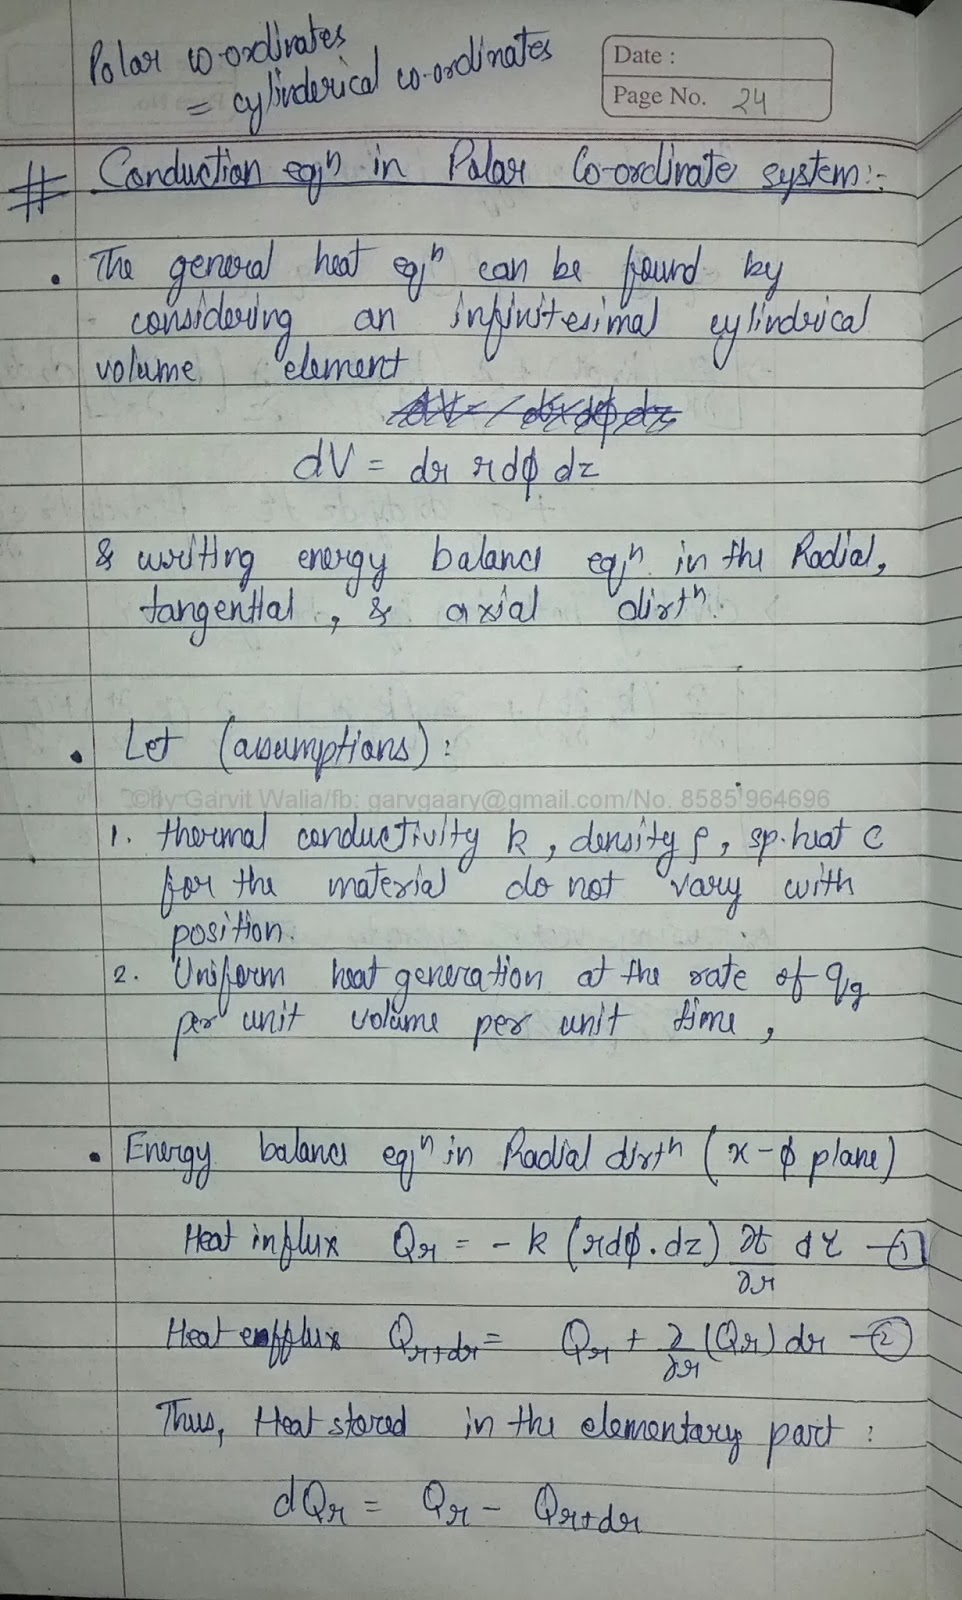 Polar co-ordinates
= cylinderical co-ordinates
Date :
Page No. 24
# Conduction eqⁿ in Polar Co-ordinate system:-
• The general heat eqⁿ can be found by
considering an infinitesimal cylindrical
volume element
dV = dr dφ dz
dV = dr rdφ dz
& writing energy balance eqⁿ in the Radial,
tangential, & axial dirtⁿ.
• Let (assumptions) :
©by Garvit Walia/fb: garvgaary@gmail.com/No. 8585964696
1. thermal conductivity k, density ρ, sp. heat c
for the material do not vary with
position.
2. Uniform heat generation at the rate of qg
per unit volume per unit time,
• Energy balance eqⁿ in Radial dirtⁿ (x-φ plane)
Heat influx Qr = - k (rdφ.dz) ∂t/∂r dτ —(1)
Heat efflux Qr+dr = Qr + ∂/∂r (Qr) dr —(2)
Thus, Heat stored in the elementary part :
dQr = Qr - Qr+dr